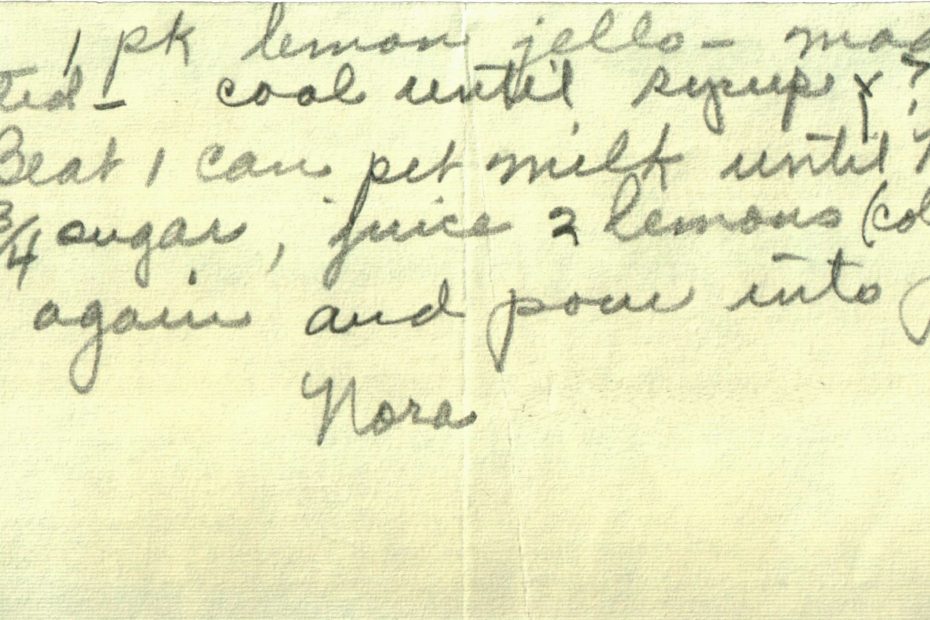 1 pk lemon jello - mad
ted - cool until syrupy
Beat 1 can pet milk until
3/4 sugar, juice 2 lemons (col
again and pour into
Nora